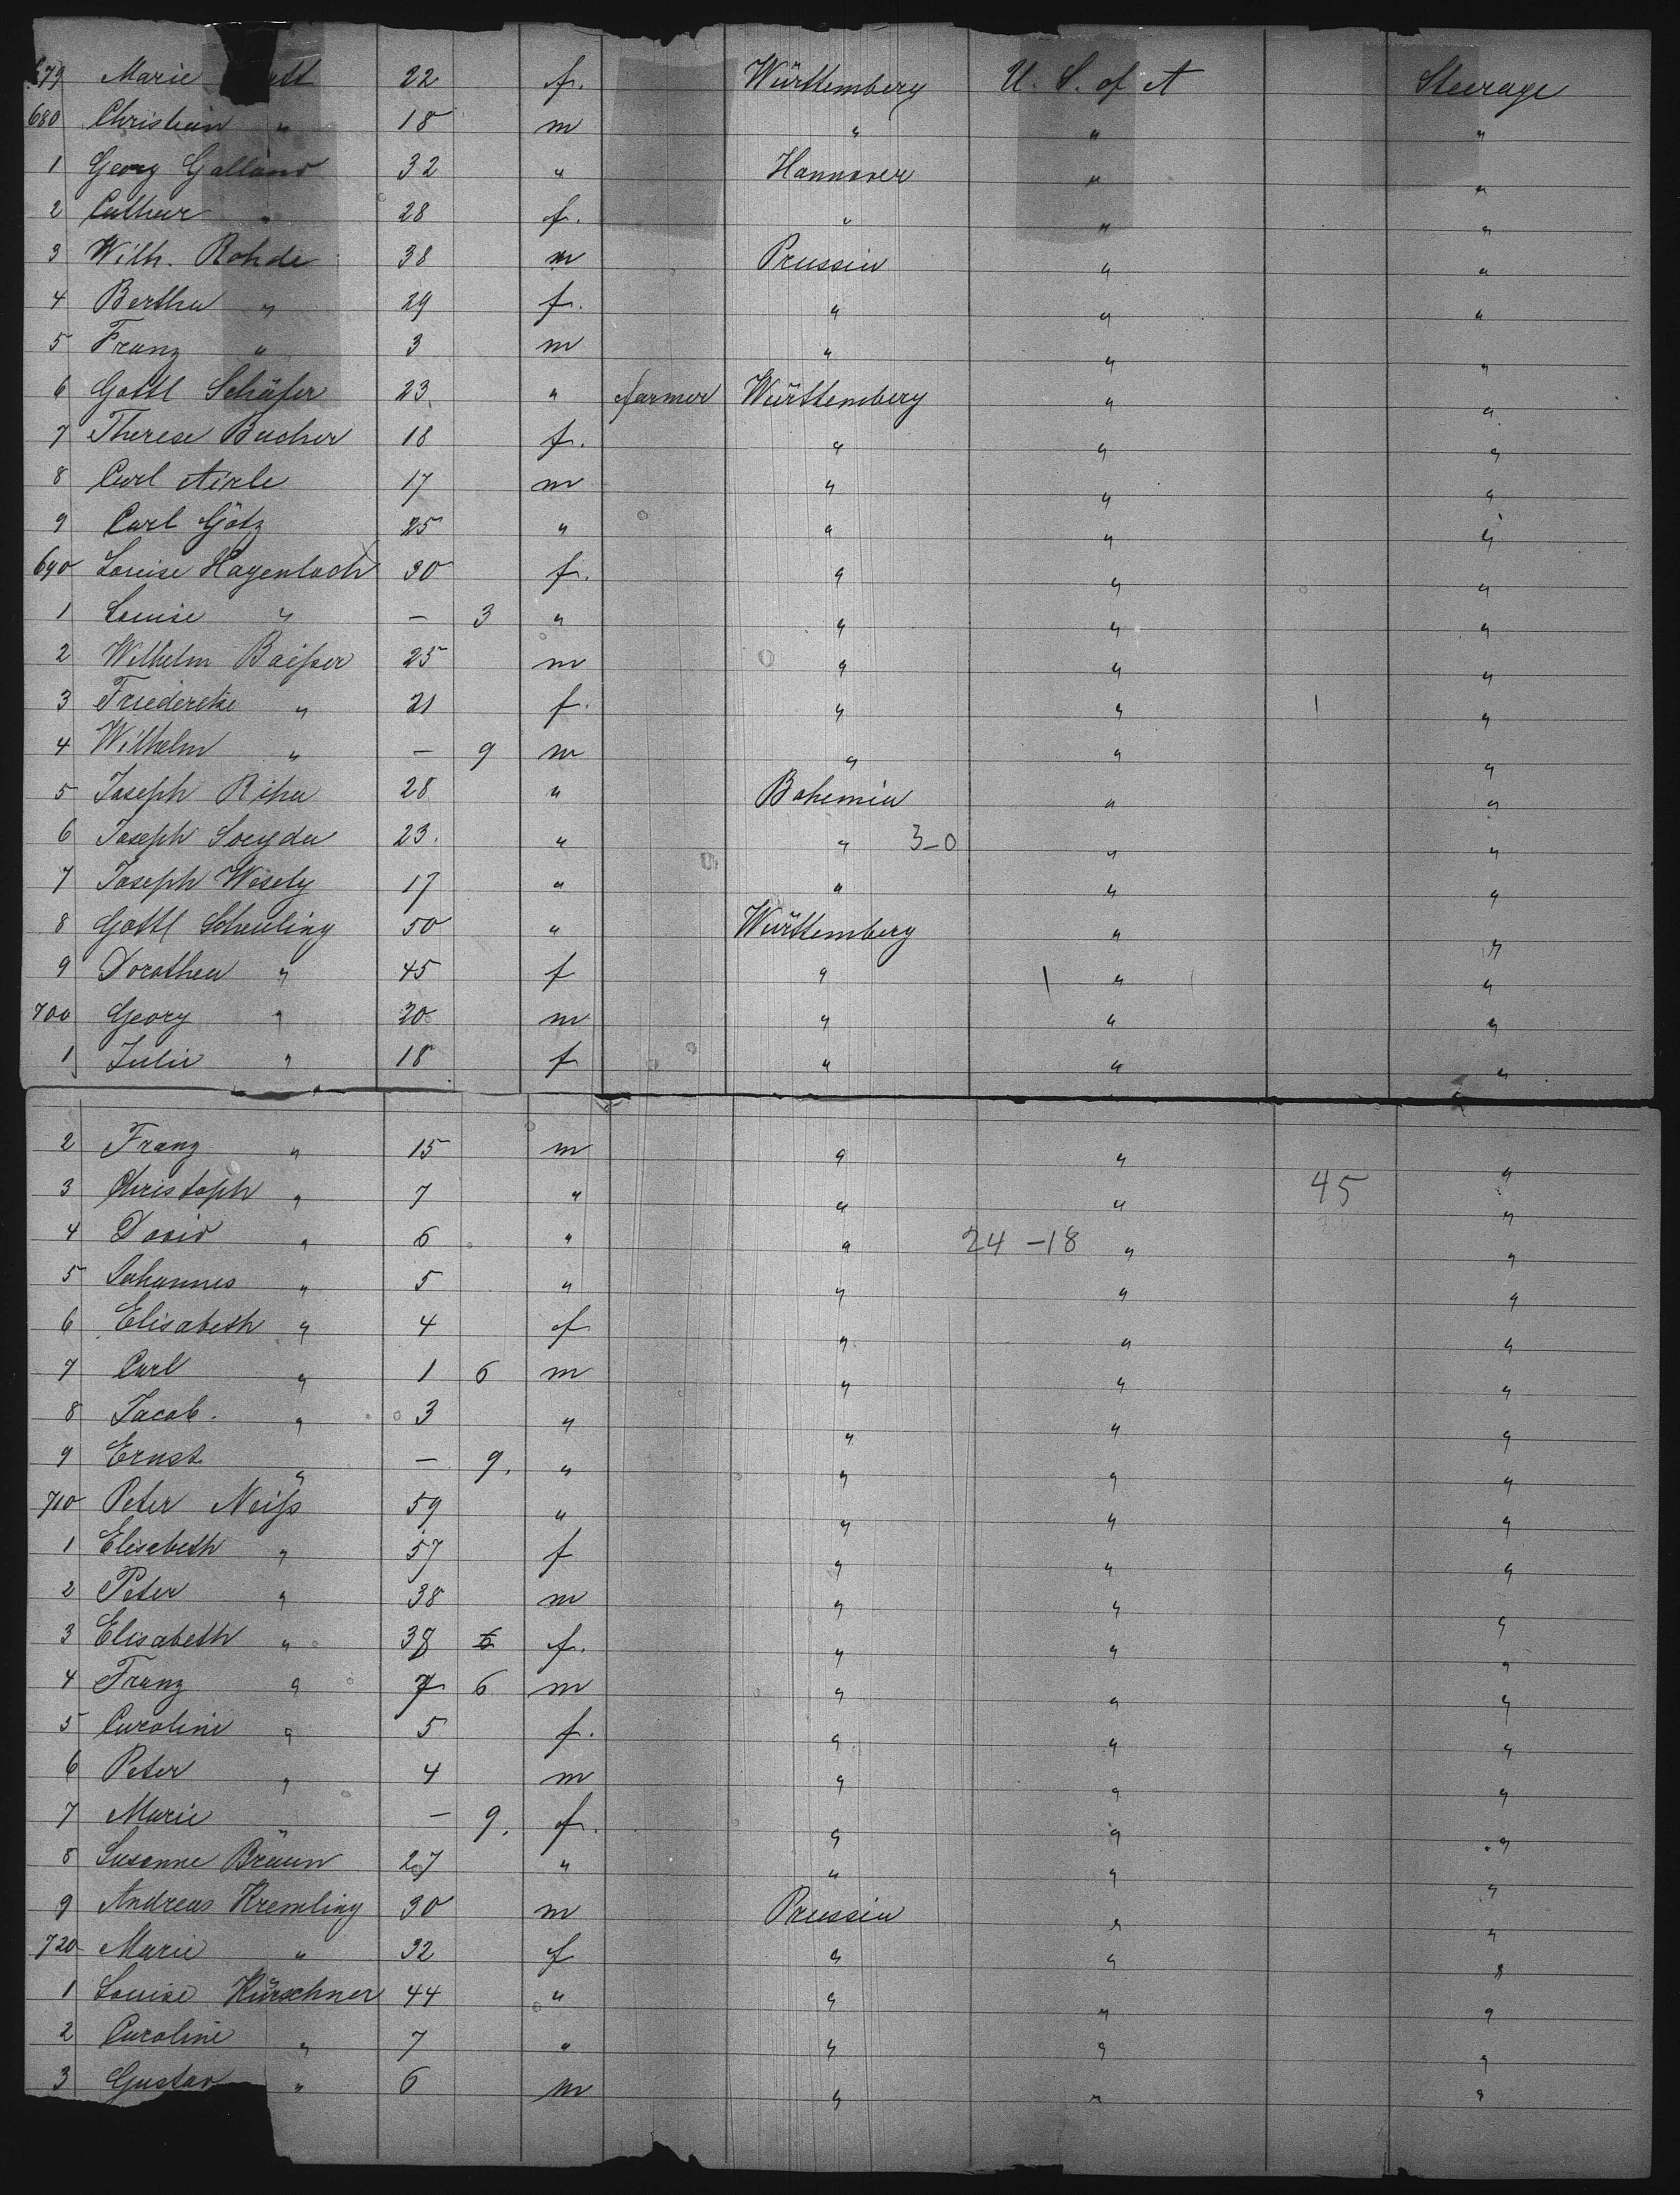 679 Marie 22 f. Württemberg U. S. of A Steerage
680 Christian " 18 m " " "
1 Georg Galland 32 " Hannover " "
2 Cathar " 28 f. " " "
3 Wilh. Rohde 38 m Prussia " "
4 Bertha " 29 f. " " "
5 Franz " 3 m " " "
6 Gottl Schäfer 23 " farmer Württemberg " "
7 Therese Bucher 18 f. " " "
8 Carl Airle 17 m " " "
9 Carl Götz 25 " " " "
690 Louise Hagenloch 30 f. " " "
1 Louise " — 3 " " " "
2 Wilhelm Baißer 25 m " " "
3 Friederike " 21 f. " " "
4 Wilhelm " — 9 m " " "
5 Joseph Riha 28 " Bohemia " "
6 Joseph 23. " " 3-0 " "
7 Joseph Wesely 17 " " " "
8 Gottl Scheuling 50 " Württemberg " "
9 Dorothea " 45 f " " "
700 Georg " 20 m " " "
1 Julie " 18 f " " "
2 Franz " 15 m " " "
3 Christoph " 7 " " " 45 "
4 David " 6 " " 24-18 " "
5 Johannes " 5 " " " "
6 Elisabeth " 4 f " " "
7 Carl " 1 6 m " " "
8 Jacob. " 3 " " " "
9 Ernst " — 9. " " " "
710 Peter Neiß 59 " " " "
1 Elisabeth " 57 f " " "
2 Peter " 38 m " " "
3 Elisabeth " 38 6 f. " " "
4 Franz " 7 6 m " " "
5 Caroline " 5 f. " " "
6 Peter " 4 m " " "
7 Marie " — 9. f. " " "
8 Susanne Braun 27 " " " "
9 Andreas Kremling 30 m Prussia " "
720 Marie " 32 f " " "
1 Louise Kürschner 44 " " " "
2 Caroline " 7 " " " "
3 Gustav " 6 m " " "